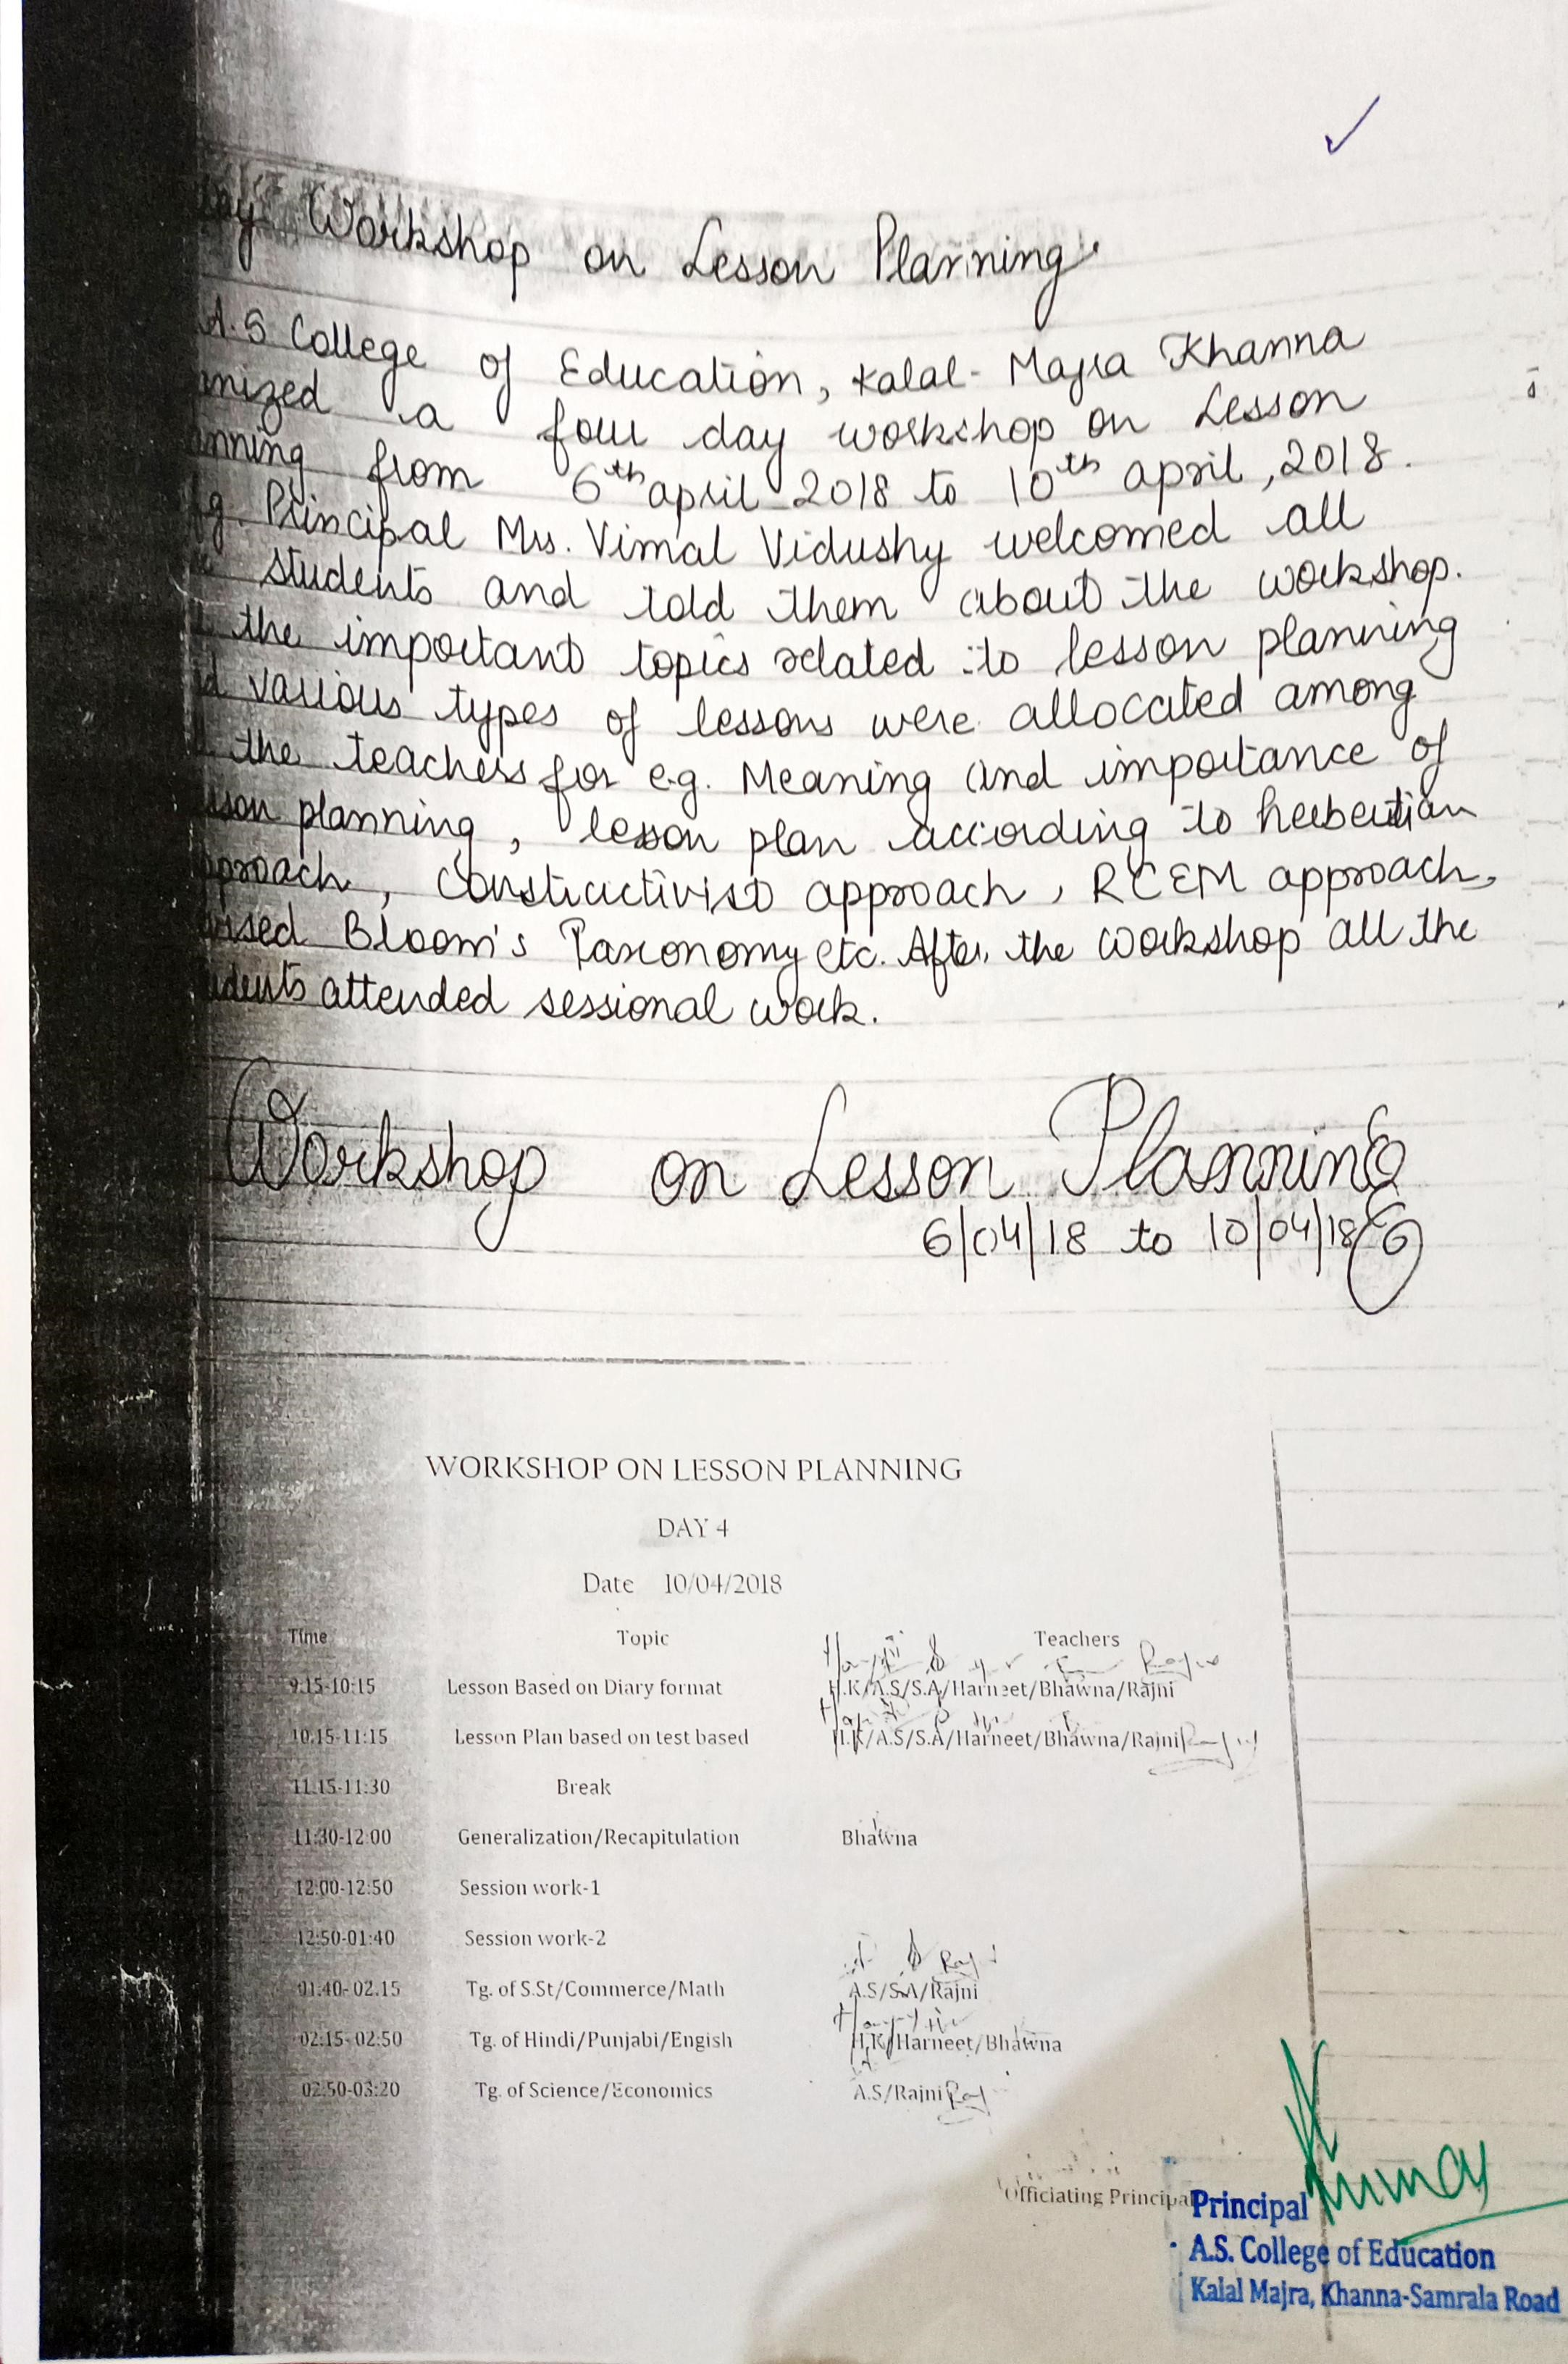 Workshop on Lesson Planning
A.S College of Education, Kalal-Majra Khanna
a four day workshop on Lesson
from 6th april 2018 to 10th april, 2018.
Principal Mrs. Vimal Vidushy welcomed all
students and told them about the workshop.
the important topics related to lesson planning
various types of lessons were allocated among
the teachers for e.g. Meaning and importance of
planning, lesson plan according to herbertian
approach, Constructivist approach, RCEM approach,
Bloom's Taxonomy etc. After the workshop all the
attended sessional work.
Workshop on Lesson Planning
6/04/18 to 10/04/18
WORKSHOP ON LESSON PLANNING
DAY 4
Date 10/04/2018
Time Topic Teachers
9.15-10:15 Lesson Based on Diary format H.K/A.S/S.A/Harneet/Bhawna/Rajni
10.15-11:15 Lesson Plan based on test based H.K/A.S/S.A/Harneet/Bhawna/Rajni
11.15-11:30 Break
11:30-12:00 Generalization/Recapitulation Bhawna
12:00-12:50 Session work-1
12:50-01:40 Session work-2
01:40-02.15 Tg. of S.St/Commerce/Math A.S/S.A/Rajni
02:15-02:50 Tg. of Hindi/Punjabi/Engish H.K/Harneet/Bhawna
02:50-03:20 Tg. of Science/Economics A.S/Rajni
Officiating Principal
Principal
A.S. College of Education
Kalal Majra, Khanna-Samrala Road